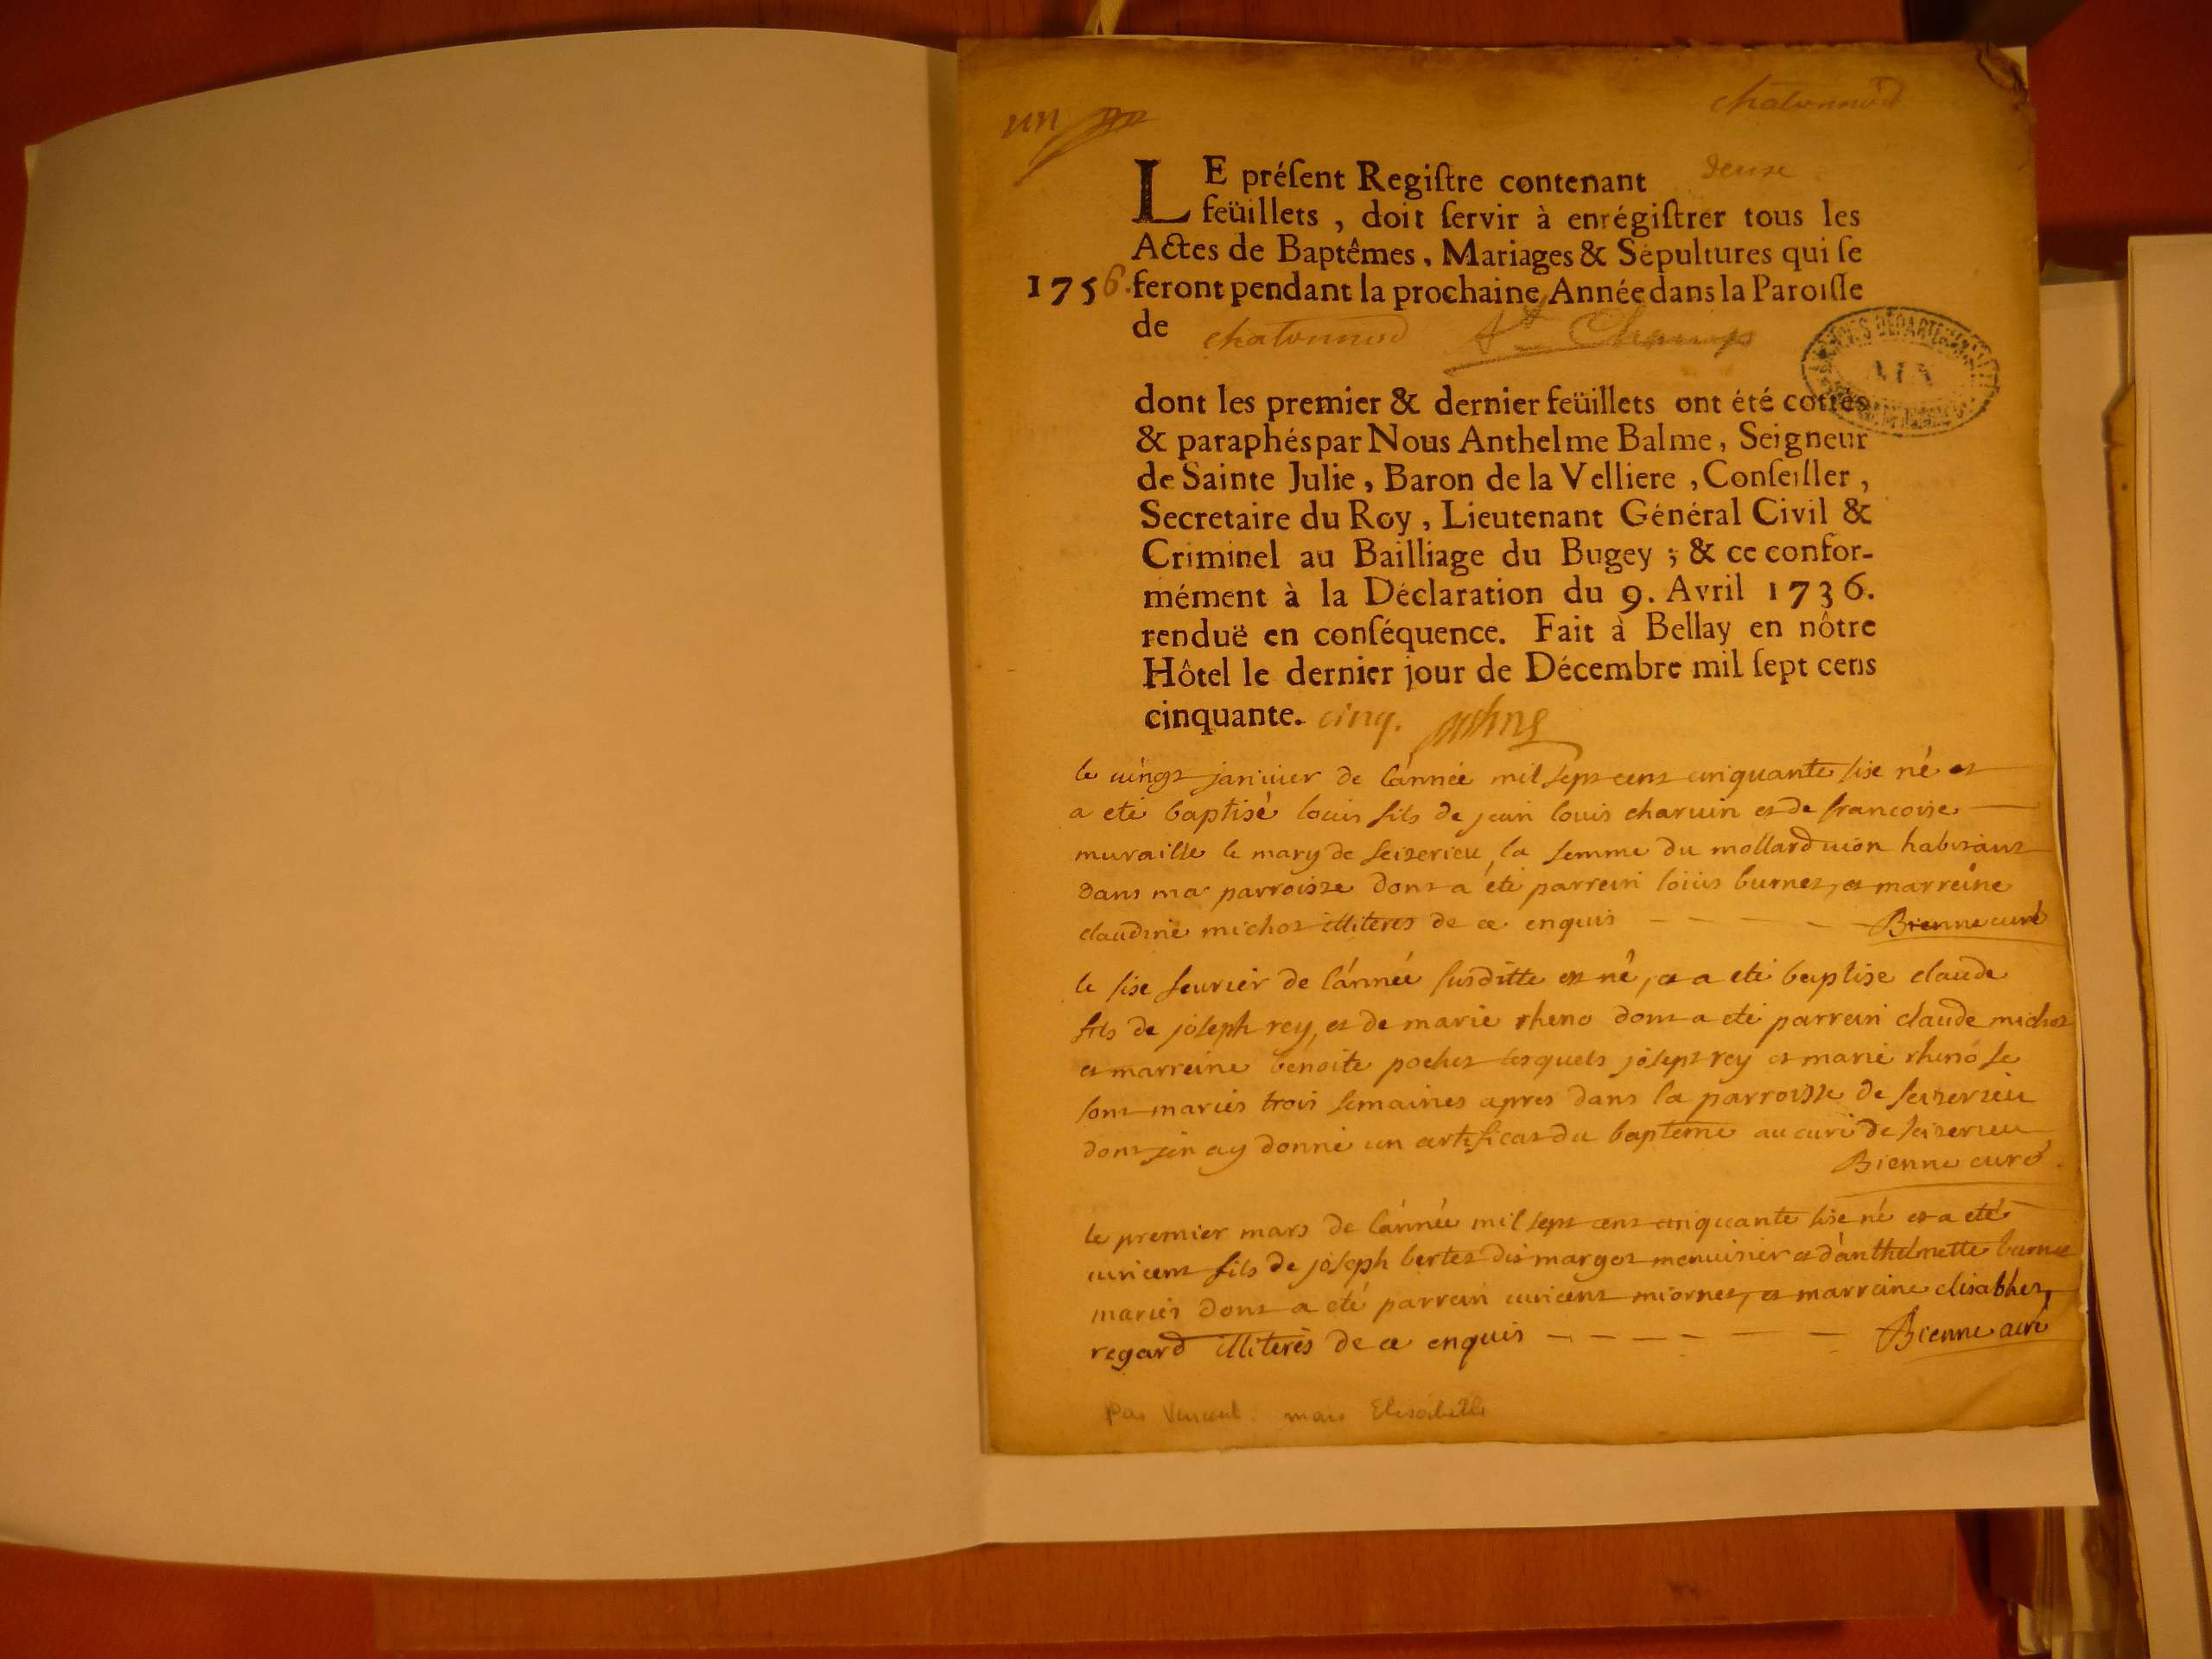 un
chatonnod
LE préſent Regiſtre contenant deux
feüillets, doit ſervir à enrégiſtrer tous les
Actes de Baptêmes, Mariages & Sépultures qui ſe
1756. feront pendant la prochaine Année dans la Paroiſſe
de chatonnod St Champs
dont les premier & dernier feüillets ont été cottés
& paraphés par Nous Anthelme Balme, Seigneur
de Sainte Julie, Baron de la Velliere, Conſeiller,
Secretaire du Roy, Lieutenant Général Civil &
Criminel au Bailliage du Bugey; & ce confor-
mément à la Déclaration du 9. Avril 1736.
renduë en conſéquence. Fait à Bellay en nôtre
Hôtel le dernier jour de Décembre mil ſept cens
cinquante. cinq.
le vingt janvier de l'année mil sept cent cinquante sixe né et
a eté baptisé louis fils de jean louis charvin et de francoise
muraille le mary de seizerieu, la femme du mollard vion habitans
dans ma parroisse dont a été parrein loüis burnet, et marreine
claudine michot illiterés de ce enquis Bienne curé
le sixe feuvrier de l'année susditte est né, et a eté baptise claude
fils de joseph rey, et de marie rheno dont a eté parrein claude michot
et marreine benoite pochet lesquels josept rey et marie rheno se
sont mariés trois semaines apres dans la parroisse de seizerieu
dont j'en ay donné un certificat du baptême au curé de seizerieu
Bienne curé
le premier mars de l'année mil sept cent cinquante sixe né et a eté
vincent fils de joseph bertet dit marget menuisier et d'anthelmette burnet
mariés dont a eté parrein vincent miornet, et marreine elisabhet,
regard illiterés de ce enquis Bienne curé
Pas Vincent mais Elisabeth